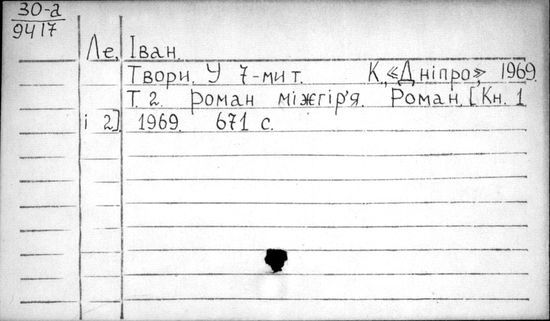 30-а
9417
Ле, Іван.
Твори. У 7-ми т. К., «Дніпро», 1969.
Т. 2. роман міжгір'я. Роман. [Кн. 1
і 2] 1969. 671 с.